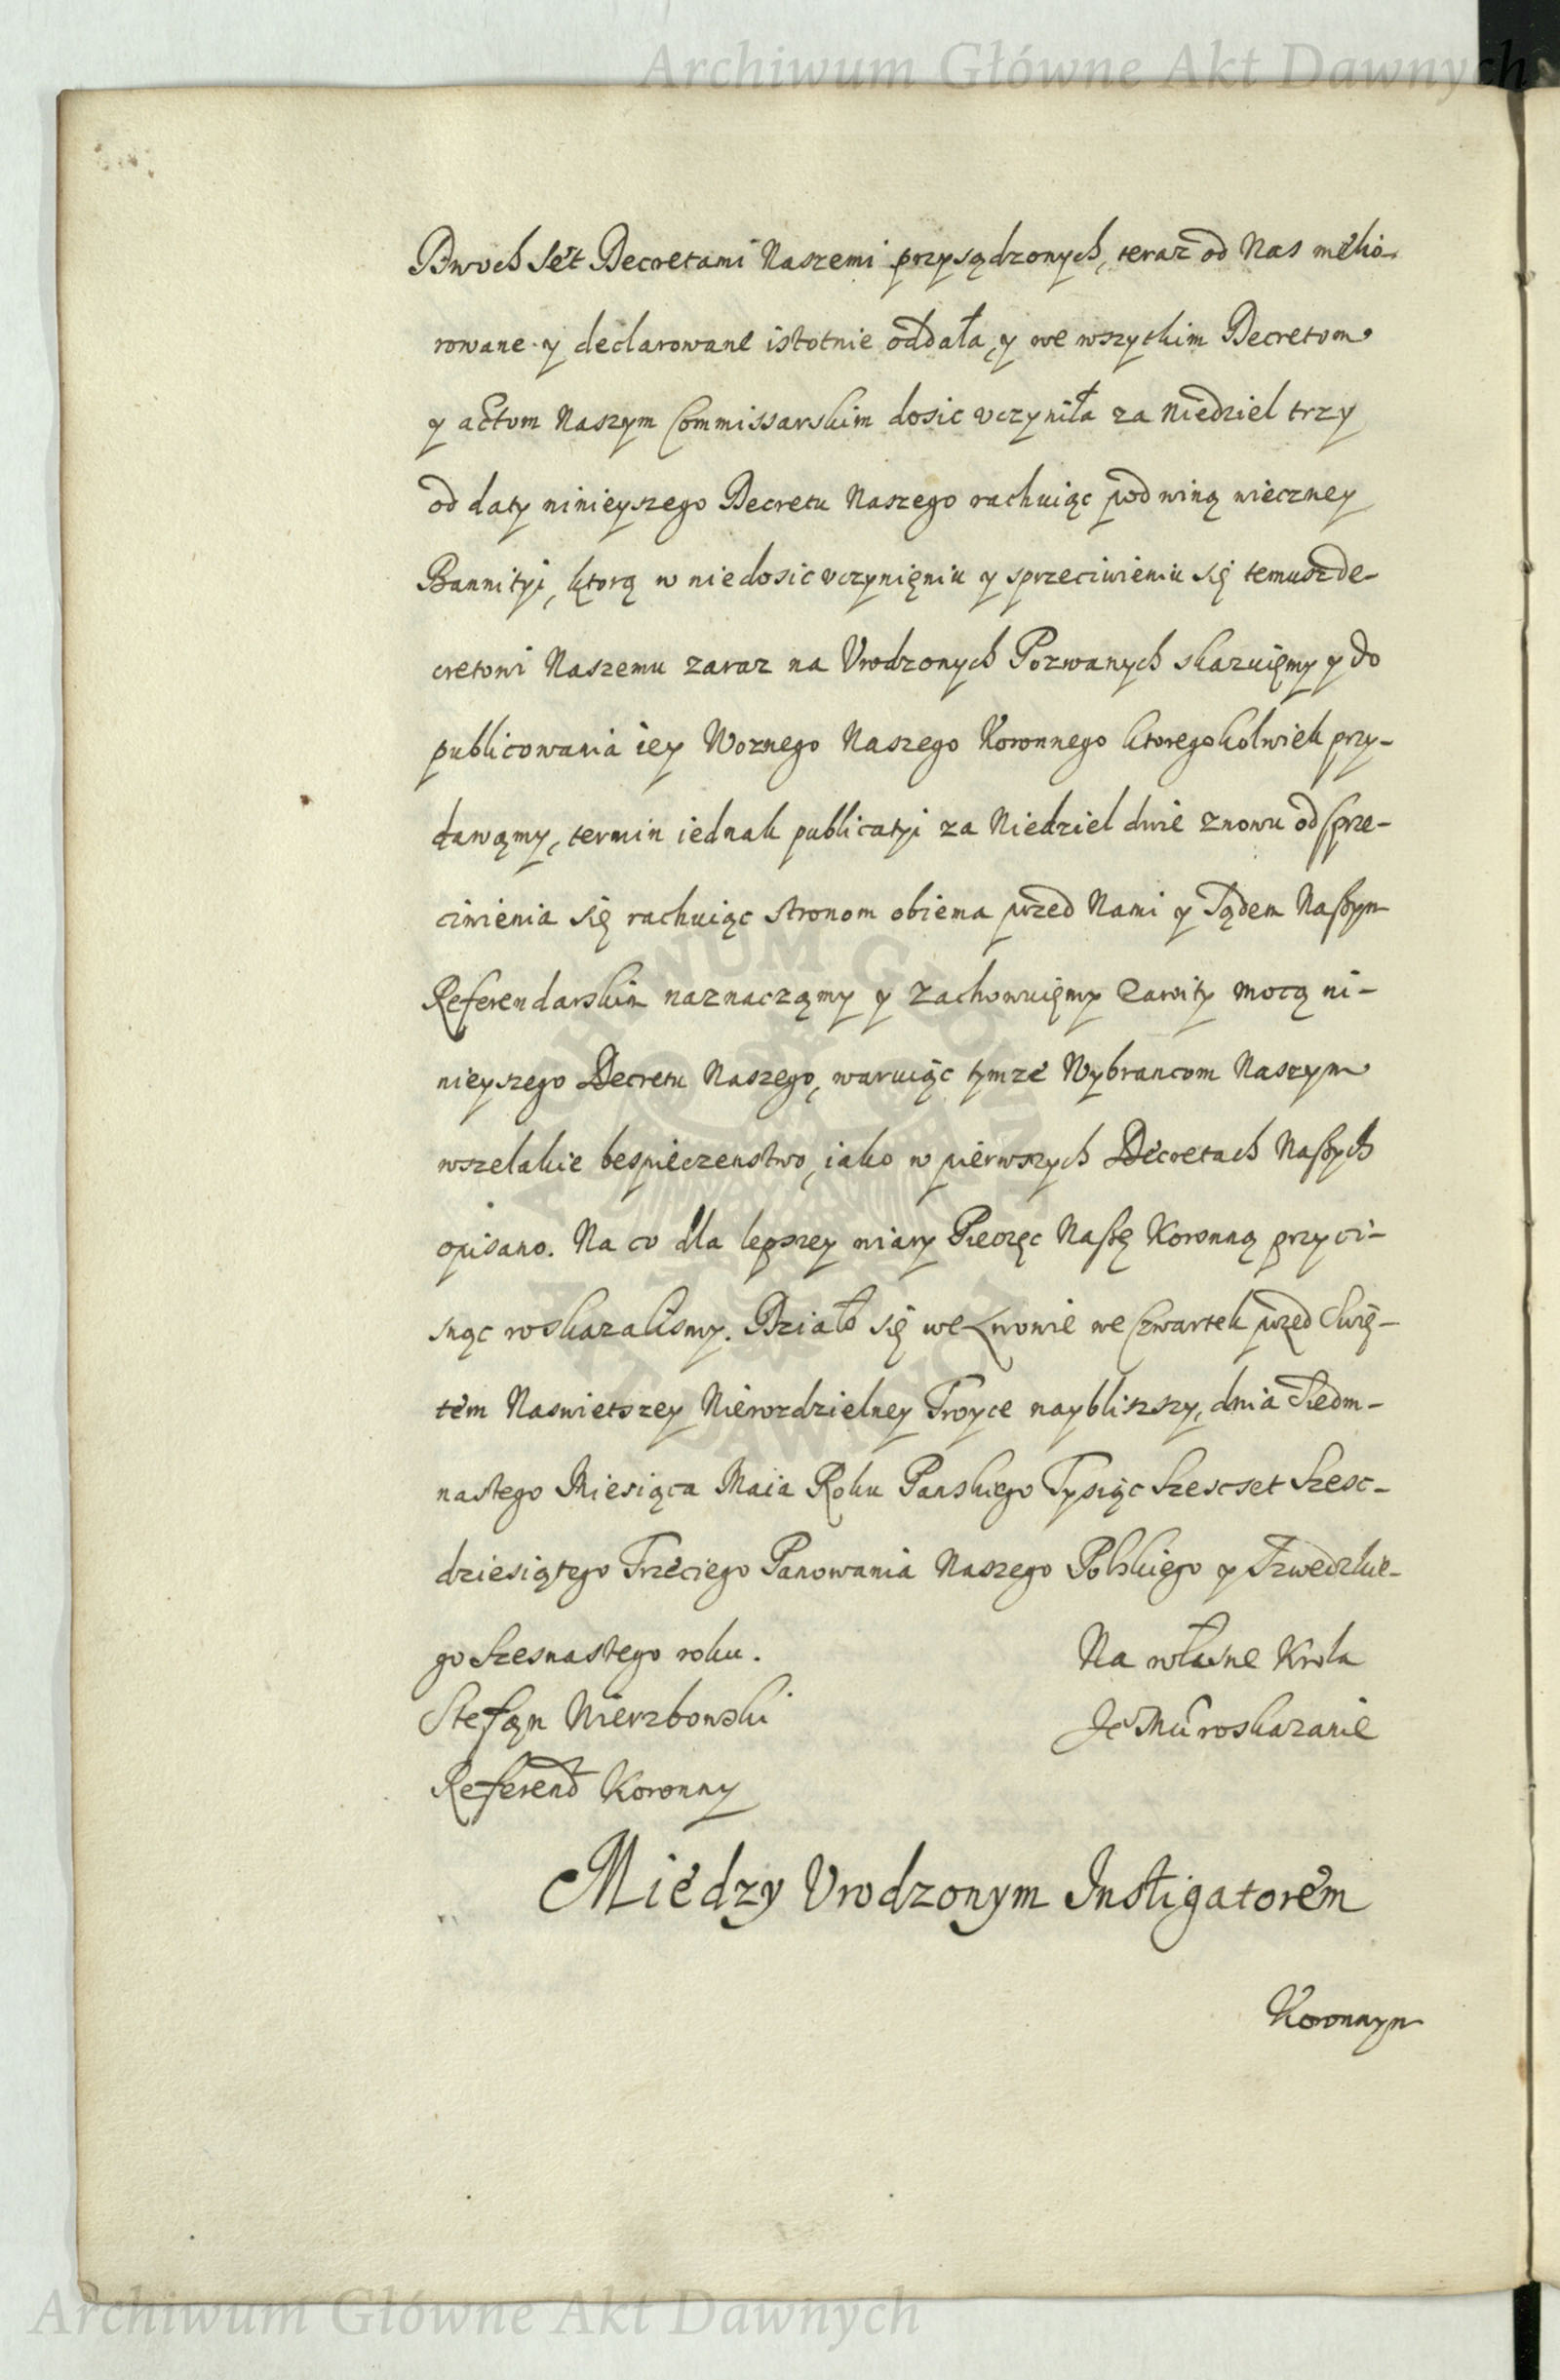 Archiwum Główne Akt Dawnych
Dwuch Set Decretami Naszemi przysądzonych, teraz od Nas melio-
rowane y declarowane istotnie oddała, y we wszytkim Decretom
y actom Naszym Commissarskim dosic vczyniła za Niedziel trzy
od daty ninieyszego Decretu Naszego rachuiąc pod winą wieczney
Bannityi, ktorą w niedosic vczynięniu y sprzeciwieniu się temusz de-
cretowi Naszemu zaraz na Vrodzonych Pozwanych skazuięmy y do
publicowania iey Woznego Naszego Koronnego ktoregokolwiek przy-
dawąmy, termin iednak publicatyi za Niedziel dwie znowu od sprze-
ciwienia się rachuiąc stronom obiema przed Nami y Sądem Naszym
Referendarskim naznacząmy y zachowuięmy zawity mocą ni-
nieyszego Decretu Naszego, waruiąc tymze Wybrancom Naszym
wszelakie bespieczenstwo, iako w pierwszych Decretach Naszych
opisano. Na co dla lepszey wiary Pieczęc Naszę Koronną przyci-
snąc roskazalismy. Działo się we Lwowie we Czwartek przed Swię-
tem Naswietszey Nierozdzielney Troyce naybliszszy, dnia Siedm-
nastego Miesiąca Maia Roku Panskiego Tysiąc Szescset Szesc-
dziesiątego Trzeciego Panowania Naszego Polskiego y Szwedzkie-
go Szesnastego roku.
Na własne Krola
Stefąn Wierzbowski
Je° Mci roskazanie
Referend Koronny
Miedzy Vrodzonym Instigatorem
Koronnym
Archiwum Główne Akt Dawnych